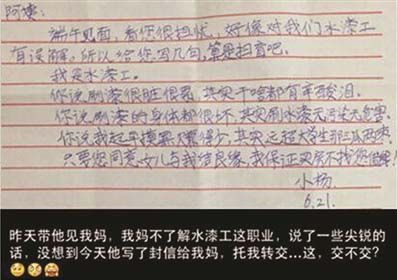 阿姨：
端午见面，看您很担忧，好像对我们水漆工
有误解。所以给您写几句，算是扫盲吧。
我是水漆工。
你说刷漆很脏很累，其实干啥都有辛酸泪。
你说刷漆的身体都很坏，其实刷水漆无污染无危害。
你说我起早摸黑只赚得少，其实远超大学生那三瓜两枣。
只要您同意女儿与我结良缘，我保证买房不找您借钱！
小杨
6.21.
昨天带他见我妈，我妈不了解水漆工这职业，说了一些尖锐的
话，没想到今天他写了封信给我妈，托我转交...这，交不交？